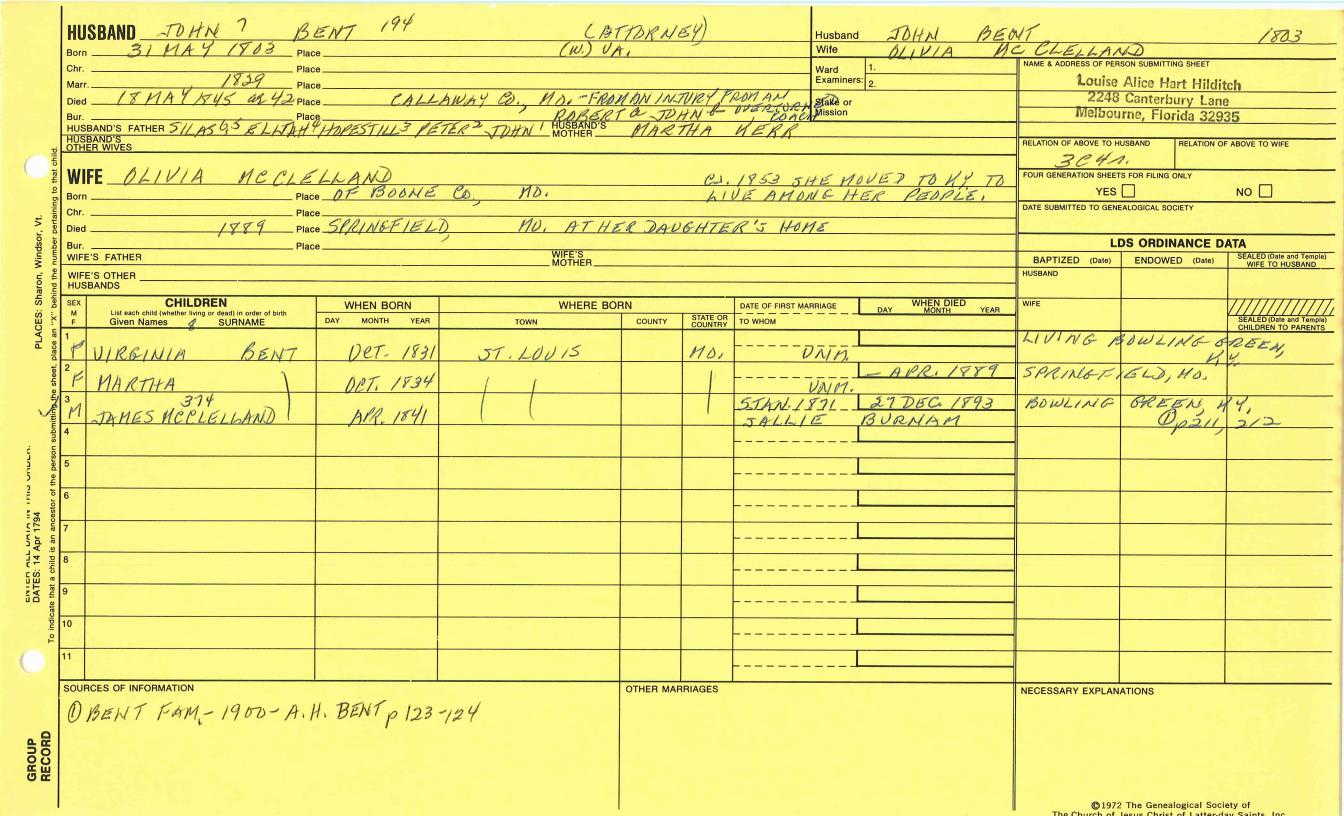 HUSBAND JOHN 7 BENT 194 (ATTORNEY)
Born 31 MAY 1803 Place (W.) VA.
Chr. Place
Marr. 1829 Place
Died 18 MAY 1845 or 42 Place CALLAWAY CO., MO. - FROM AN INJURY FROM AN
Bur. Place ROBERT & JOHN & OVERTURNED COACH
HUSBAND'S FATHER SILAS 6, 5 ELIJAH 4 HOPESTILL 3 PETER 2 JOHN 1 HUSBAND'S MOTHER MARTHA KERR
HUSBAND'S OTHER WIVES
Husband JOHN BENT 1803
Wife OLIVIA MCCLELLAND
Ward 1.
Examiners: 2.
Stake or Mission
NAME & ADDRESS OF PERSON SUBMITTING SHEET
Louise Alice Hart Hilditch
2248 Canterbury Lane
Melbourne, Florida 32935
RELATION OF ABOVE TO HUSBAND RELATION OF ABOVE TO WIFE
3C4r.
FOUR GENERATION SHEETS FOR FILING ONLY
YES NO
DATE SUBMITTED TO GENEALOGICAL SOCIETY
WIFE OLIVIA MCCLELLAND CA. 1853 SHE MOVED TO KY TO
Born Place OF BOONE CO, MO. LIVE AMONG HER PEOPLE.
Chr. Place
Died 1889 Place SPRINGFIELD, MO. AT HER DAUGHTER'S HOME
Bur. Place
WIFE'S FATHER WIFE'S MOTHER
WIFE'S OTHER HUSBANDS
LDS ORDINANCE DATA
BAPTIZED (Date) ENDOWED (Date) SEALED (Date and Temple) WIFE TO HUSBAND
HUSBAND
WIFE
SEALED (Date and Temple) CHILDREN TO PARENTS
SEX M F CHILDREN WHEN BORN WHERE BORN DATE OF FIRST MARRIAGE WHEN DIED
List each child (whether living or dead) in order of birth
Given Names 8 SURNAME DAY MONTH YEAR TOWN COUNTY STATE OR COUNTRY TO WHOM DAY MONTH YEAR
1 F VIRGINIA BENT OCT. 1831 ST. LOUIS MO. UNM. LIVING BOWLING GREEN, KY.
2 F MARTHA OCT. 1834 UNM. – APR. 1889 SPRINGFIELD, MO.
3 M 374 JAMES MCCLELLAND APR. 1841 5 JAN. 1871 27 DEC. 1893 BOWLING GREEN, KY.
SALLIE BURNAM ① p211, 212
4
5
6
7
8
9
10
11
SOURCES OF INFORMATION
① BENT FAM. - 1900 - A.H. BENT p 123-124
OTHER MARRIAGES
NECESSARY EXPLANATIONS
©1972 The Genealogical Society of
The Church of Jesus Christ of Latter-day Saints, Inc.
GROUP RECORD
ENTER ALL DATA IN THIS ORDER:
DATES: 14 Apr 1794
PLACES: Sharon, Windsor, Vt.
To indicate that a child is an ancestor of the person submitting the sheet, place an "X" behind the number pertaining to that child.